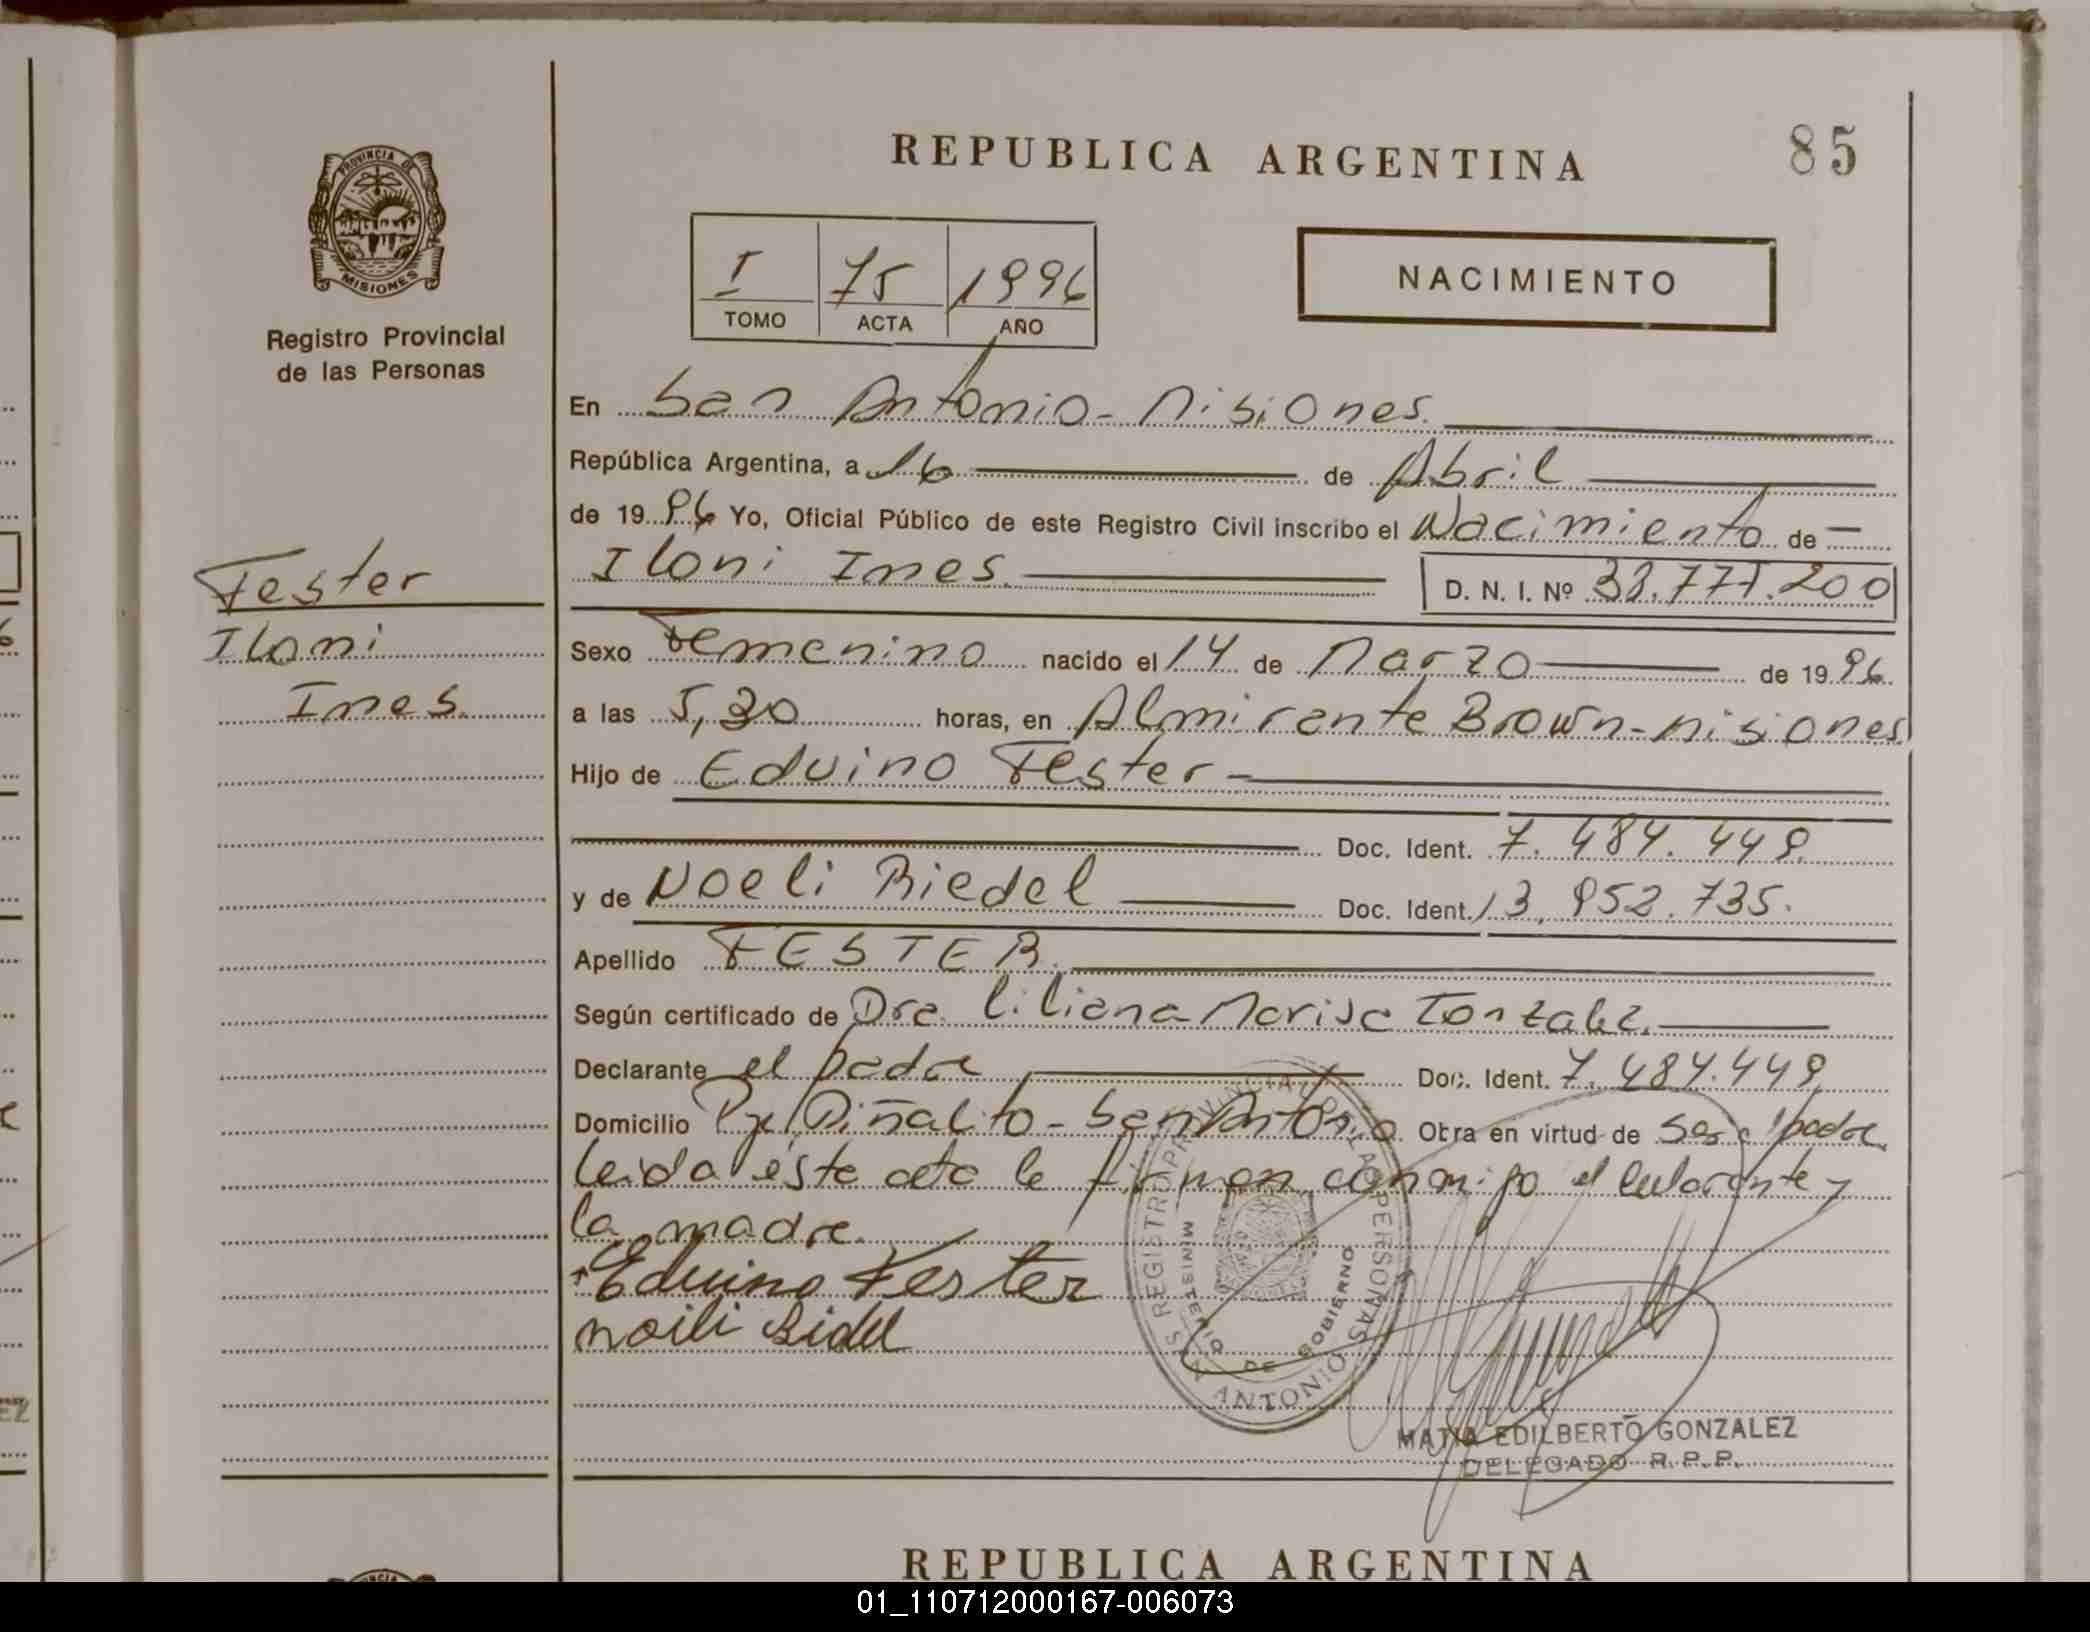 REPUBLICA ARGENTINA
85
PROVINCIA DE
MISIONES
Registro Provincial
de las Personas
I 75 1996
TOMO ACTA AÑO
NACIMIENTO
En San Antonio - Misiones.
República Argentina, a 16 de Abril
de 1996 Yo, Oficial Público de este Registro Civil inscribo el Nacimiento de
Iloni Ines. D. N. I. Nº
Fester
Iloni
Ines.
Sexo Femenino nacido el 14 de Marzo de 1996
a las 5,30 horas, en Almirante Brown - Misiones
Hijo de Eduino Fester
Doc. Ident. 7.484.449.
y de Noeli Riedel Doc. Ident. 13.952.735.
Apellido FESTER.
Según certificado de Dra. Liliana Marisa Gonzalez.
Declarante el padre Doc. Ident. 7.484.449
Domicilio Piñalito - San Antonio Obra en virtud de ser el padre
Leida este acta la firman conmigo el y
la madre.
Eduino Fester
REGISTRO PROVINCIAL DE LAS PERSONAS
MINISTERIO DE GOBIERNO
SAN ANTONIO
MATIA EDILBERTO GONZALEZ
DELEGADO R.P.P.
REPUBLICA ARGENTINA
01_110712000167-006073